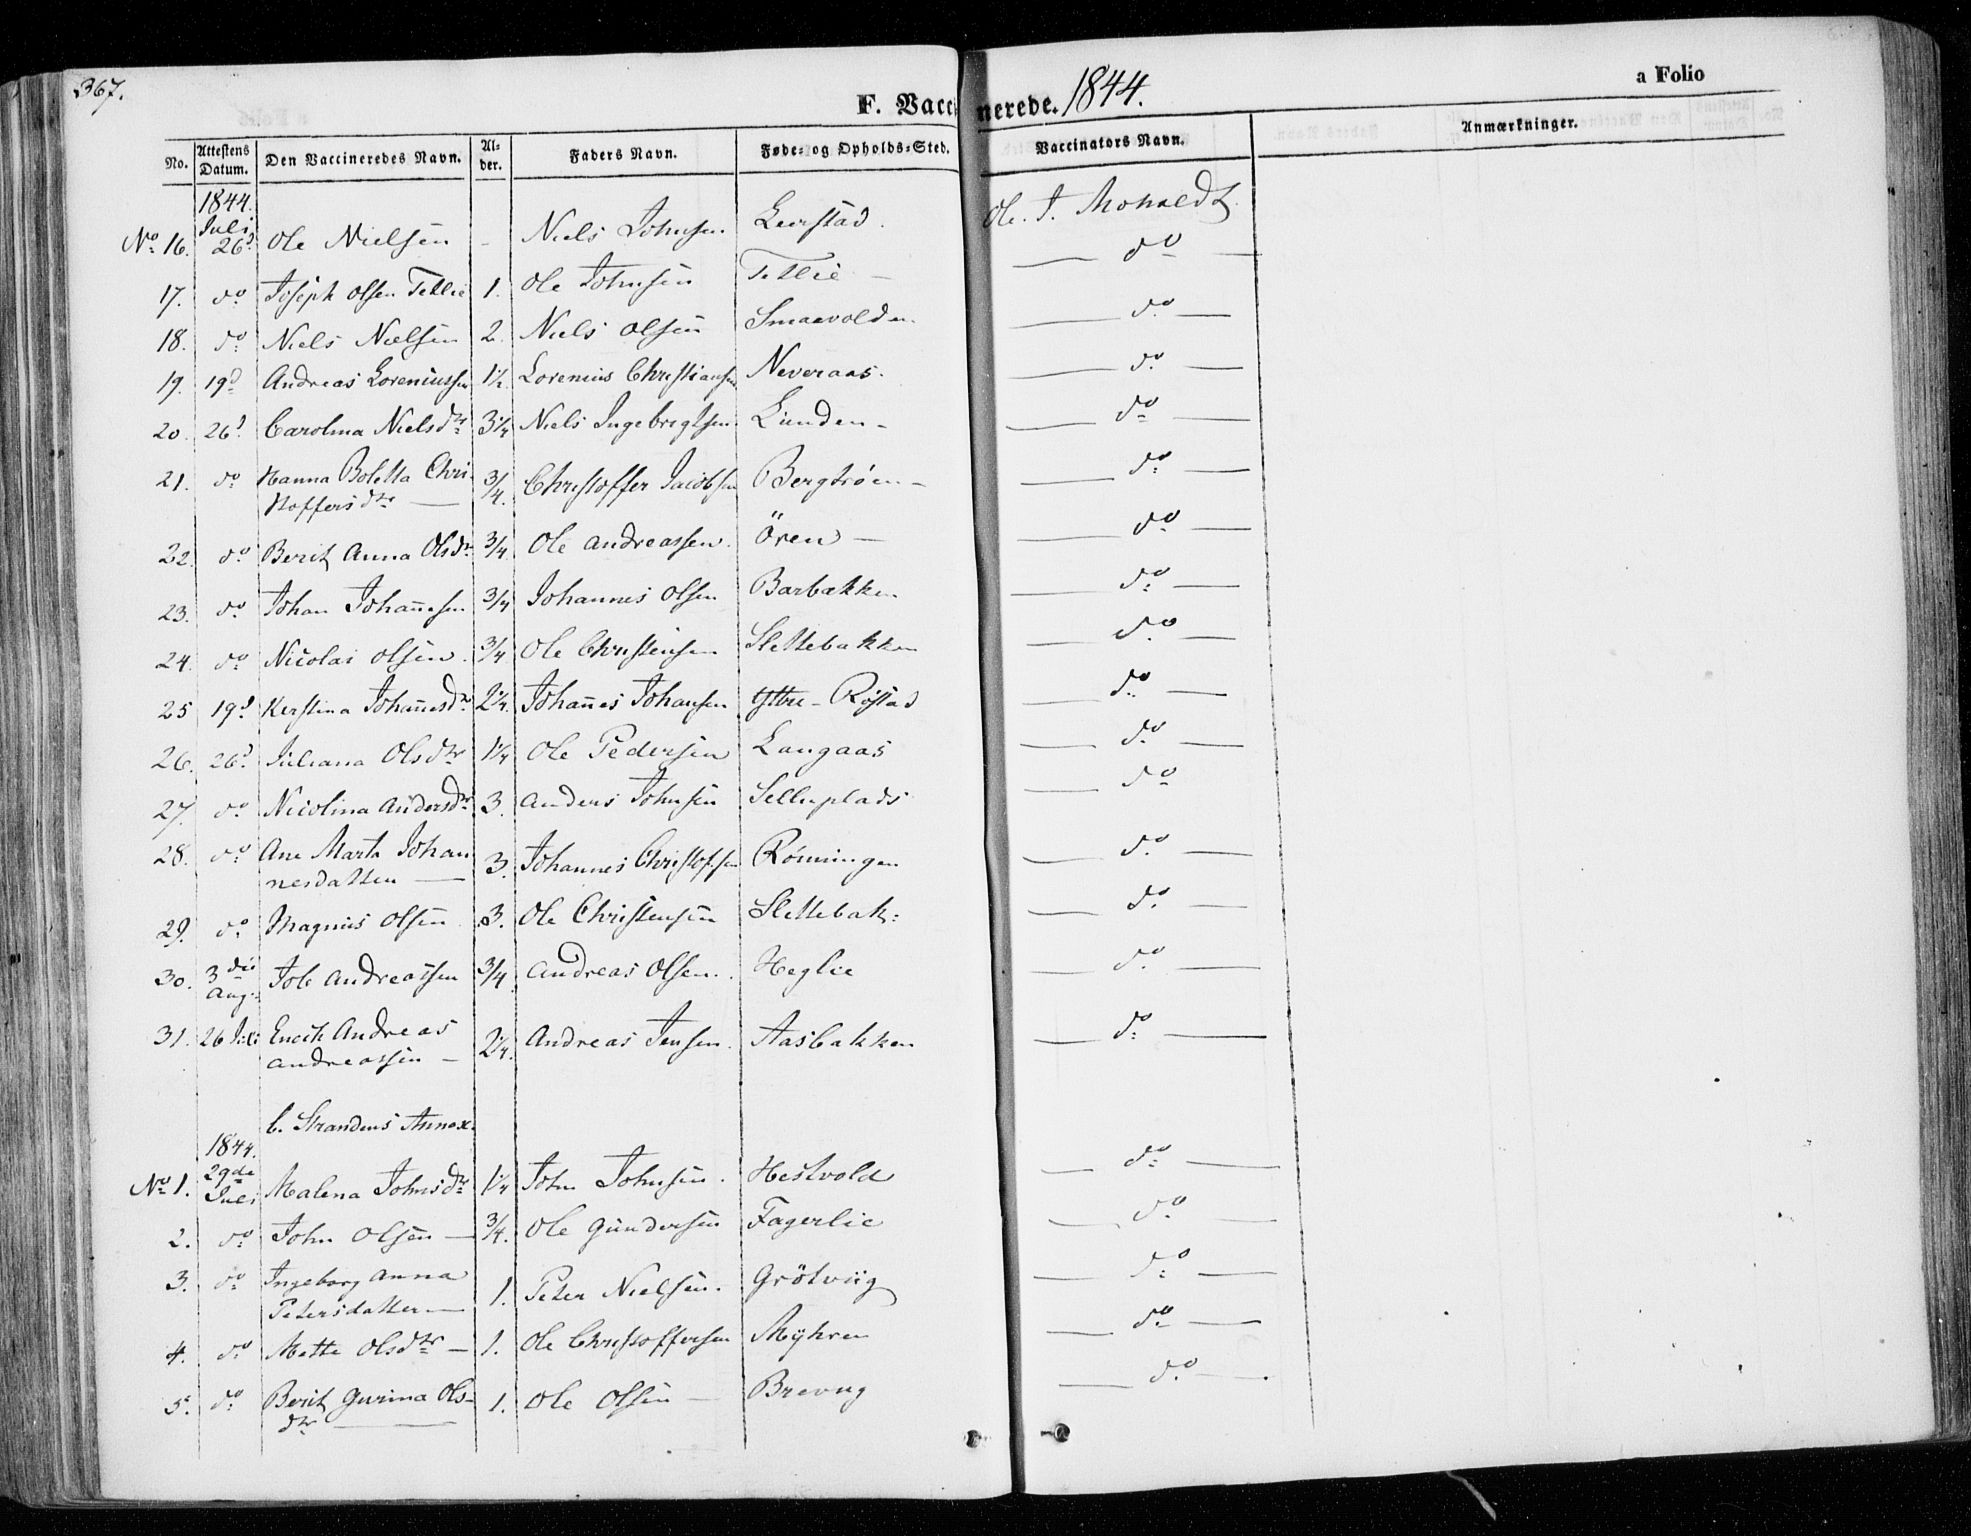 367.
F. Vaccinerede. 1844.
a Folio
No. Attestens Datum. Den Vaccineredes Navn. Al-der. Faders Navn. Føde- og Opholds-Sted. Vaccinators Navn. Anmærkninger.
1844.
Juli
No 16. 26d Ole Nielsen - Niels Johnsen Leirstad. Ole. J.
17. do Joseph Olsen Tetlie 1. Ole Johnsen Tetlie — do
18. do Niels Nielsen 2. Niels Olsen Smaavolden do
19. 19d Andreas Loreniussen 1½ Lorenius Christiansen Neveraas. do
20. 26d Carolina Nielsdtr 3¼ Niels Ingebrigtsen Lunden - do
21. do Hanna Boletta Chri- ¾. Christoffer Jacobsen do
stoffersdtr —
22. do Berit Anna Olsdtr ¾. Ole Andreassen. Ören — do
23. do Johan Johañesen ¾ Johannes Olsen Barbakken do
24. do Nicolai Olsen. ¾ Ole Christensen Slettebakken do
25 19d Kerstina Johañesdtr 2¼. Johañes Johansen Ystre - Röstad do
26. 26d Juliana Olsdtr 1¼ Ole Pedersen Langaas do
27. do Nicolina Andersdtr 3. Anders Johnsen Selluplads do
28. do Ane Marta Johan 3. Johannes Christofsen Rönningen do
nesdatter —
29. do Magnus Olsen 3. Ole Christensen Slettebak: do
30. 3die Aug. Job Andreassen ¾. Andreas Olsen. Heglie do
31. 26 Juli Enok Andreas 2¼. Andreas Jensen. Aasbakken do
Andreassen —
b. Strandens Annex.
1844.
No 1. 29de Juli Malena Johnsdtr 1¼ John Johnsen. Hestvold do
2. do John Olsen — ¾. Ole Gundersen Fagerlie do
3. do Ingeborg Anna 1. Peter Nielsen. Grötviig do
Petersdatter —
4. do Mette Olsdtr — 1. Ole Christoffersen Myhren do
5. do Berit Gurina Ols- 1. Ole Olsen — do
dtr —